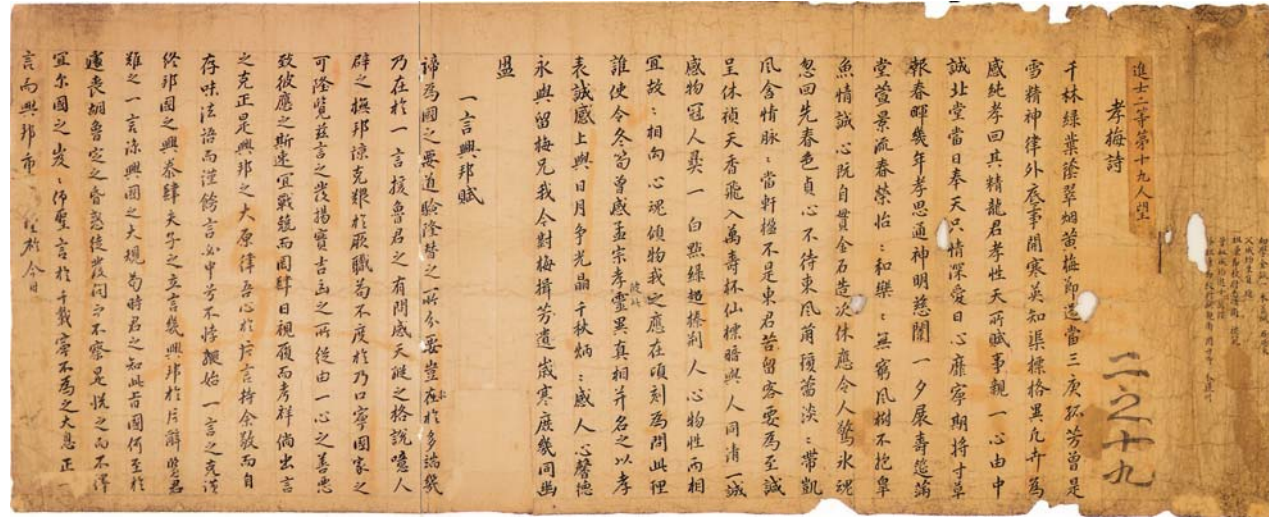 二之十九
進士二等第十九人望
孝梅詩
千林綠葉蔭翠烟黃梅節迨當三庚孤芳曾是
雪精神律外底事開寒英知渠標格異凡卉爲
感純孝回其精龍君孝性天所賦事親一心由中
誠北堂當日奉天只情深愛日心靡寧期將寸草
報春暉幾年孝思通神明慈闈一夕展壽筵滿
堂萱景流春榮怡〻和樂〻無窮風樹不抱皐
魚情誠心旣自貫金石造次休應令人驚氷魂
忽回先春色貞心不待東風蕾淡〻帶凱
風含情脉〻當軒楹不是東君苦留客要爲至誠
呈休禎天香飛入萬壽杯仙標暗與人同淸一誠
感物冠人彝一白點綠超榛荊人心物性兩相
宜故〻相向心魂傾物我之應在頃刻爲問此理
誰使令冬筍曾感孟宗孝彼此靈異眞相幷名之以孝
表誠感上與日月爭光晶千秋炳〻感人心馨德
永與留梅兄我今對梅揖芳遺歲寒庶幾同幽
盟
一言興邦賦
諦爲國之要道驗隆替之所分要豈在於多端幾
乃在於一言援魯君之有問感天縱之格說噫人
辟之撫邦諒克艱於厥職苟不度於乃口寧國家之
可隆覽玆言之發揚實吉凶之所從由一心之善惡
致彼應之斯速宜戰兢而罔肆日視履而考祥倘出言
之克正是興邦之大原律吾心於片言持余敬而自
存味法語而謹飭言必中兮不悖擬始一言之克謹
終邦國之興泰肆夫子之立言幾興邦於片辭嗟爲君
難之一言諒興國之大規苟時君之知此豈國何至於
遽喪細魯定之昏惑徒發問而不察是悅之而不繹
宜尔國之岌〻佈聖言於千載寧不爲之大息正一
言而興邦市於今日